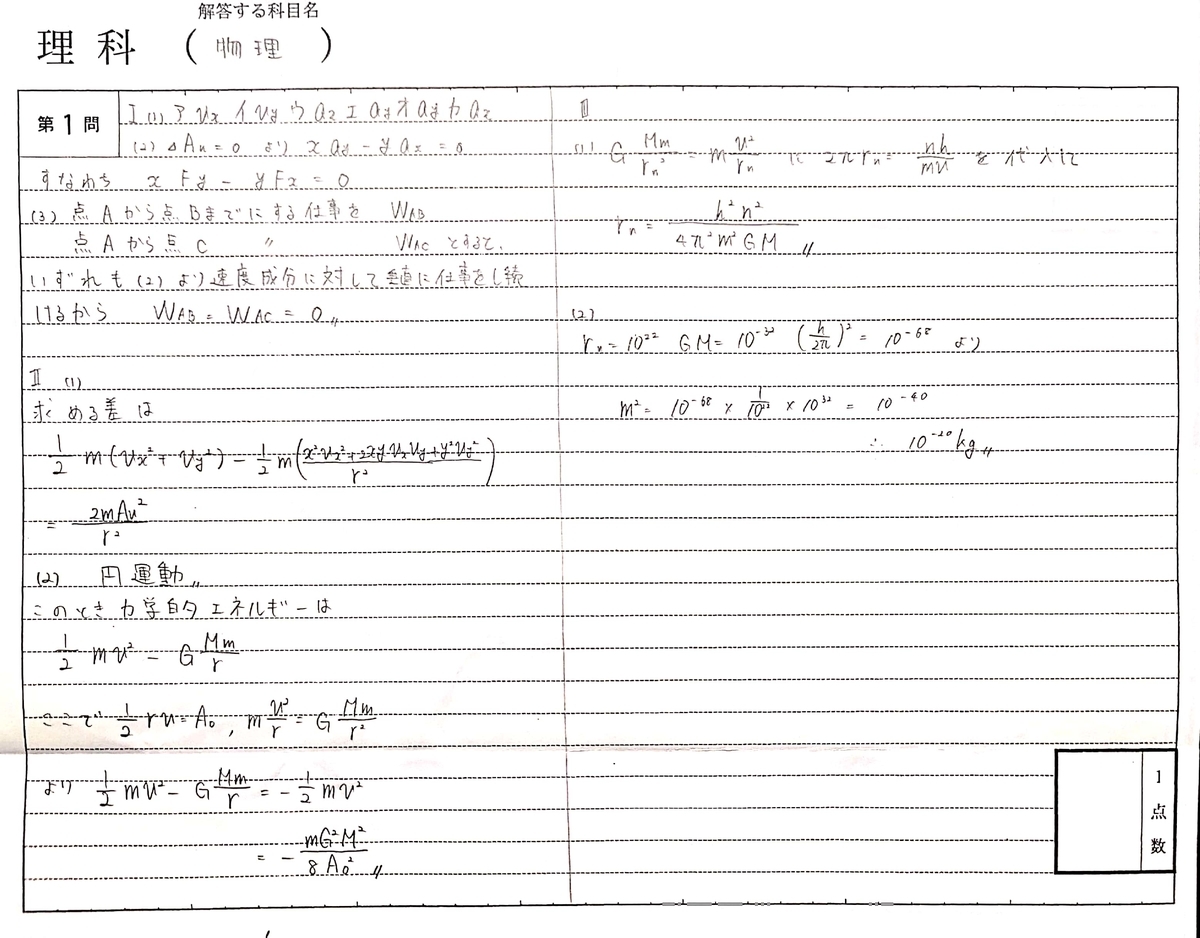 解答する科目名
理科 ( 物理 )
第1問
I (1) ア vx イ vy ウ az エ ay オ ay カ az
(2) ΔAu = 0 より x ay - y ax = 0
すなわち x Fy - y Fx = 0
(3) 点Aから点Bまでにする仕事を WAB
点Aから点C 〃 WAC とすると、
いずれも(2)より速度成分に対して垂直に仕事をし続
けるから WAB = WAC = 0 〃
II (1)
求める差は
1/2 m(vx² + vy²) - 1/2 m((x²vx² + 2xyvxvy + y²vy²)/r²)
= 2mAu²/r²
(2) 円運動 〃
このとき力学的エネルギーは
1/2 mv² - G Mm/r
ここで 1/2 rv = A₀ , m v²/r = G Mm/r²
より 1/2 mv² - G Mm/r = - 1/2 mv²
= - mG²M²/8A₀² 〃
III
(1) G Mm/rn² = m v²/rn に 2πrn = nh/mv を代入して
rn = h²n²/4π²m²GM 〃
(2)
rn = 10²² GM = 10⁻³² (h/2π)² = 10⁻⁶⁸ より
m² = 10⁻⁶⁸ × 1/10²² × 10³² = 10⁻⁴⁰
∴ 10⁻²⁰ kg 〃
1
点
数